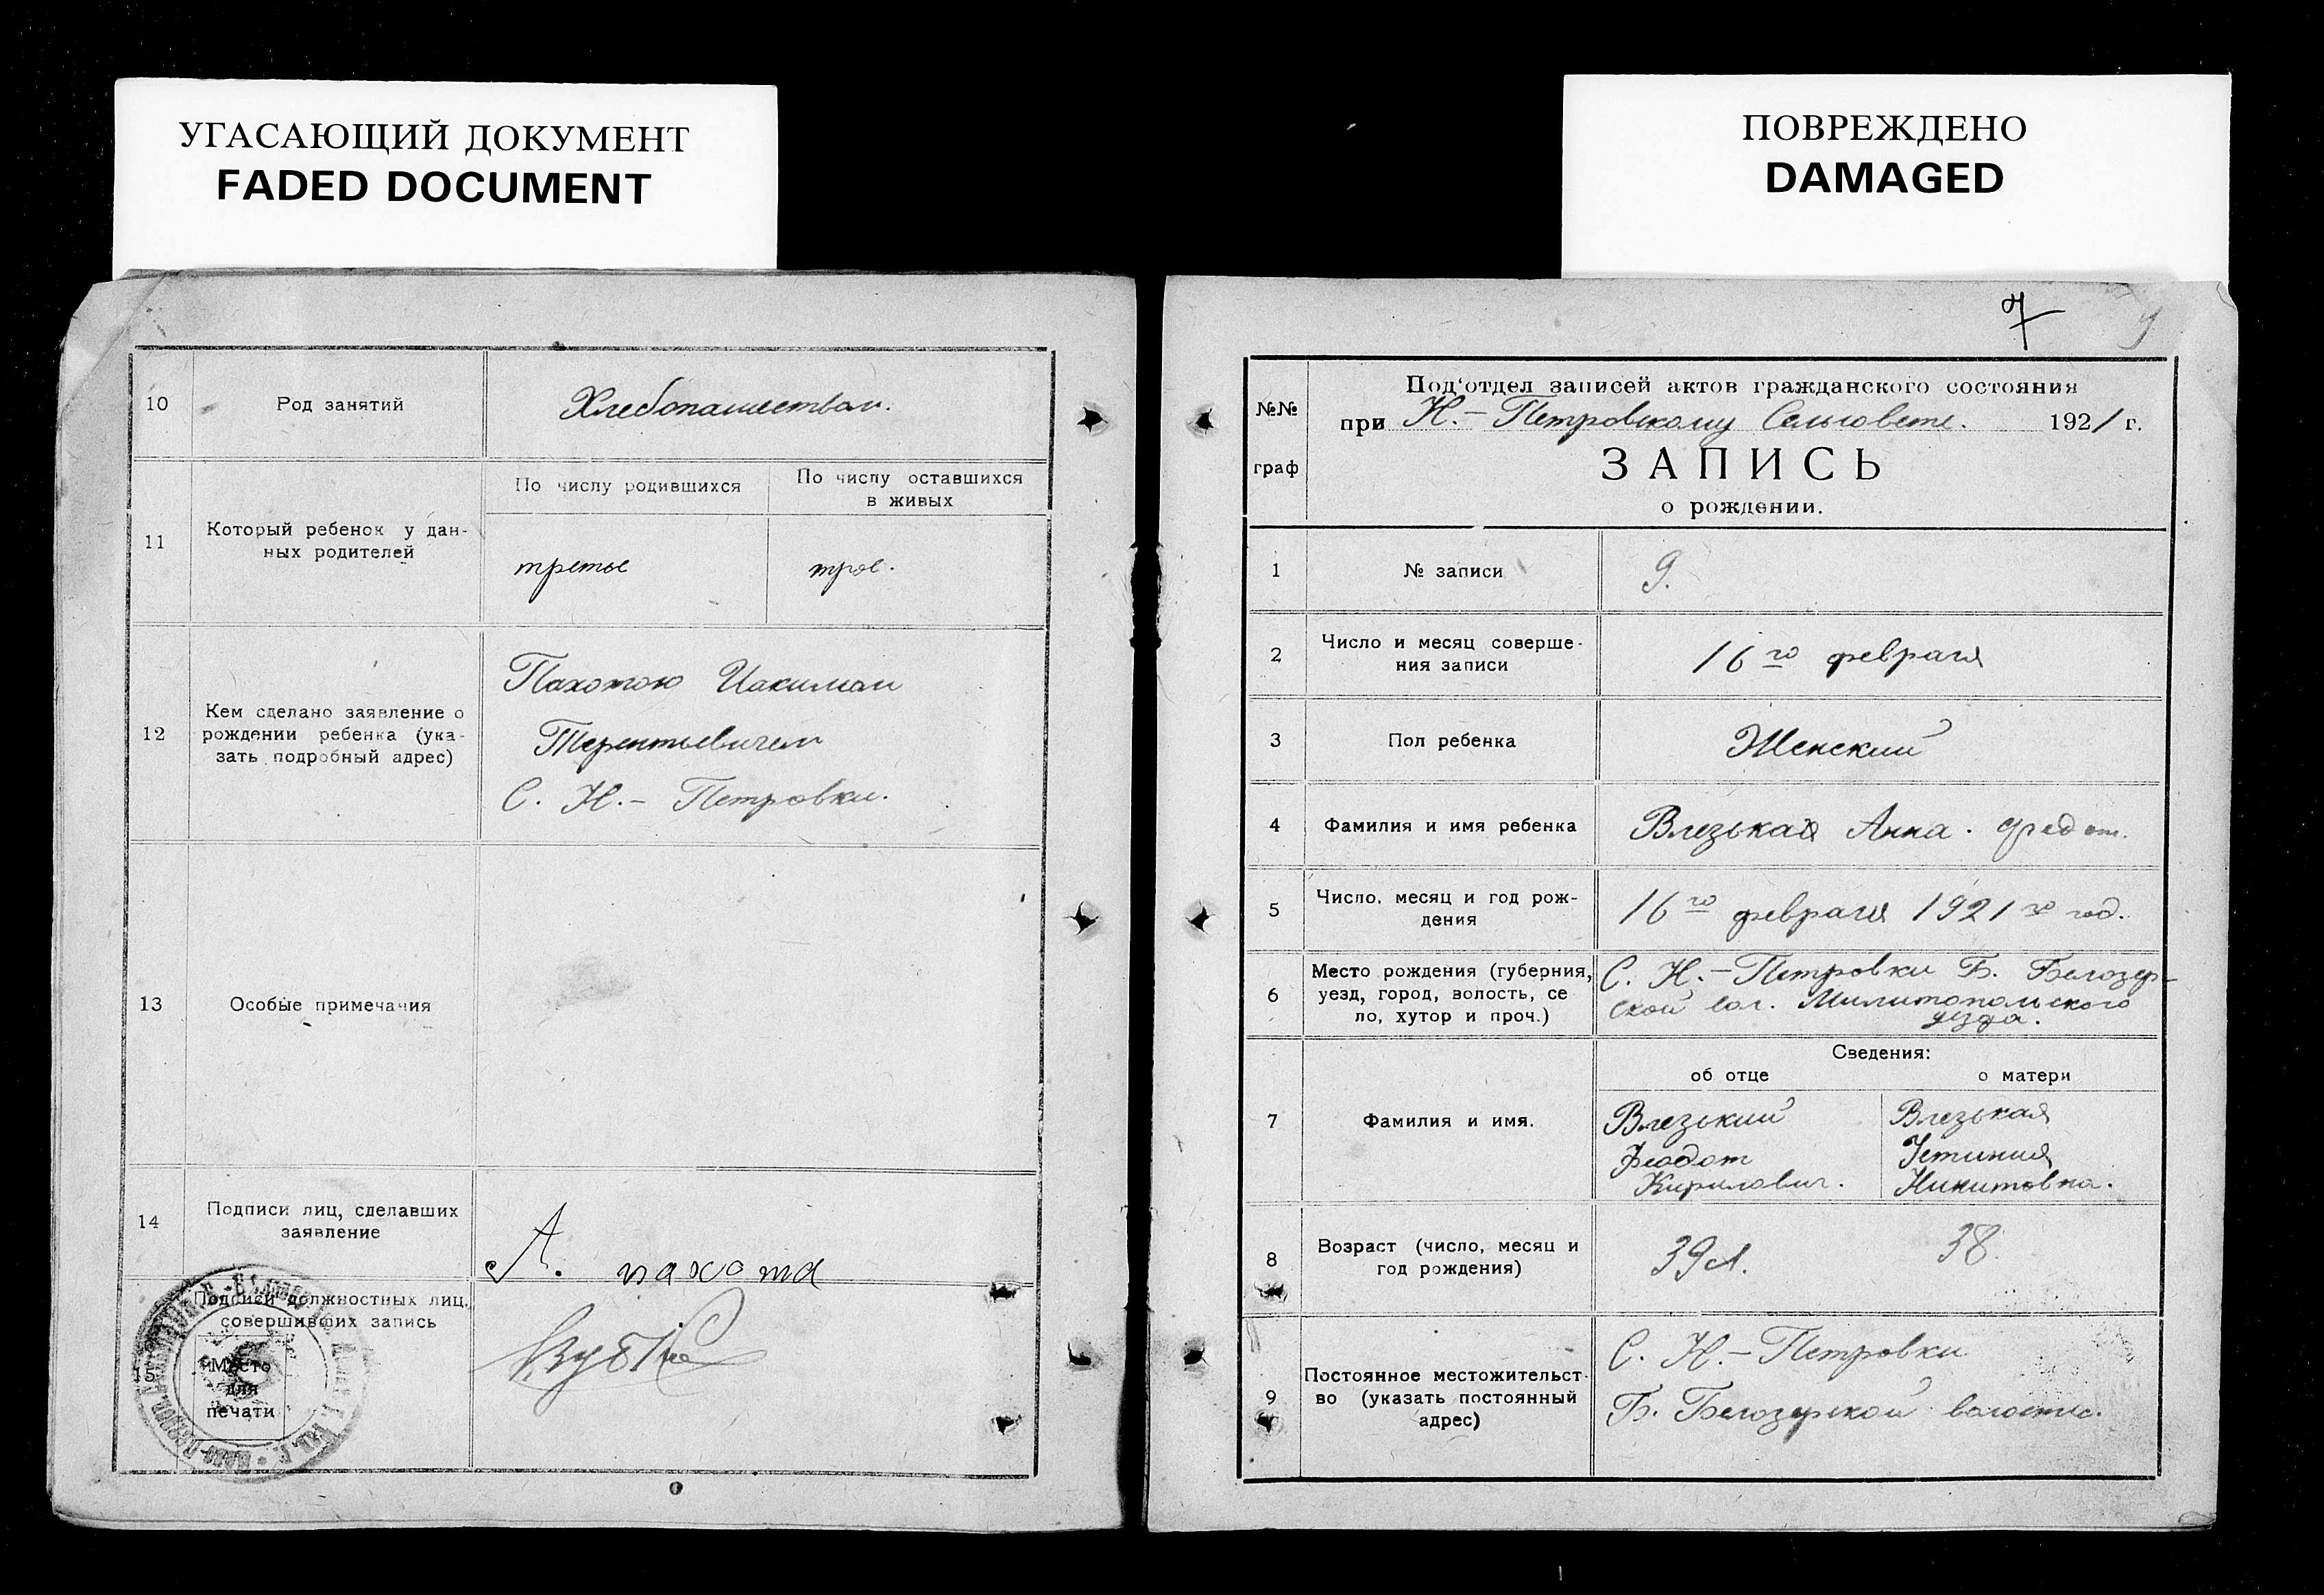 УГАСАЮЩИЙ ДОКУМЕНТ
FADED DOCUMENT
ПОВРЕЖДЕНО
DAMAGED
10
Род занятий
Хлебопашеством.
11
Который ребенок у дан-
ных родителей
По числу родившихся
По числу оставшихся
в живых
третье
трое.
12
Кем сделано заявление о
рождении ребенка (ука-
зать подробный адрес)
Пахотою Иакимом
Терентьевичем
С. Н.- Петровки.
13
Особые примечания
14
Подписи лиц, сделавших
заявление
А. пахота
15
Подписи должностных лиц,
совершивших запись
Место
для
печати
7
№№
граф
Под'отдел записей актов гражданского состояния
при Н.- Петровкому Сельсовете. 1921 г.
ЗАПИСЬ
о рождении.
1
№ записи
9.
2
Число и месяц соверше-
ния записи
16го февраля
3
Пол ребенка
Женский
4
Фамилия и имя ребенка
Влезькая Анна. Федот.
5
Число, месяц и год рож-
дения
16го февраля 1921го год.
6
Место рождения (губерния,
уезд, город, волость, се
ло, хутор и проч.)
С. Н.- Петровки Б. Белозер-
ской вол. Милитопольского
уезда.
7
Фамилия и имя.
Сведения:
об отце
о матери
Влезький
Феодот
Кирилович.
Влезькая
Устиния
Никитовна.
8
Возраст (число, месяц и
год рождения)
39 л.
38.
9
Постоянное местожительст-
во (указать постоянный
адрес)
С. Н.- Петровки
Б. Белозерской волости.